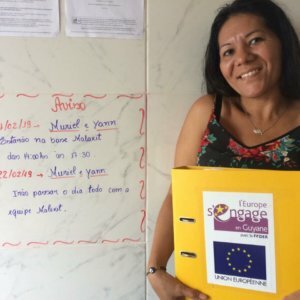 Aviso
/02/19 → Muriel e Yann
Estarão na base Malakit
das 14:00hs às 17:30
22/02/19 → Muriel e Yann
Irão passar o dia todo com a
equipe Malakit.
l'Europe
s'engage
en Guyane
avec le FEDER
UNION EUROPÉENNE